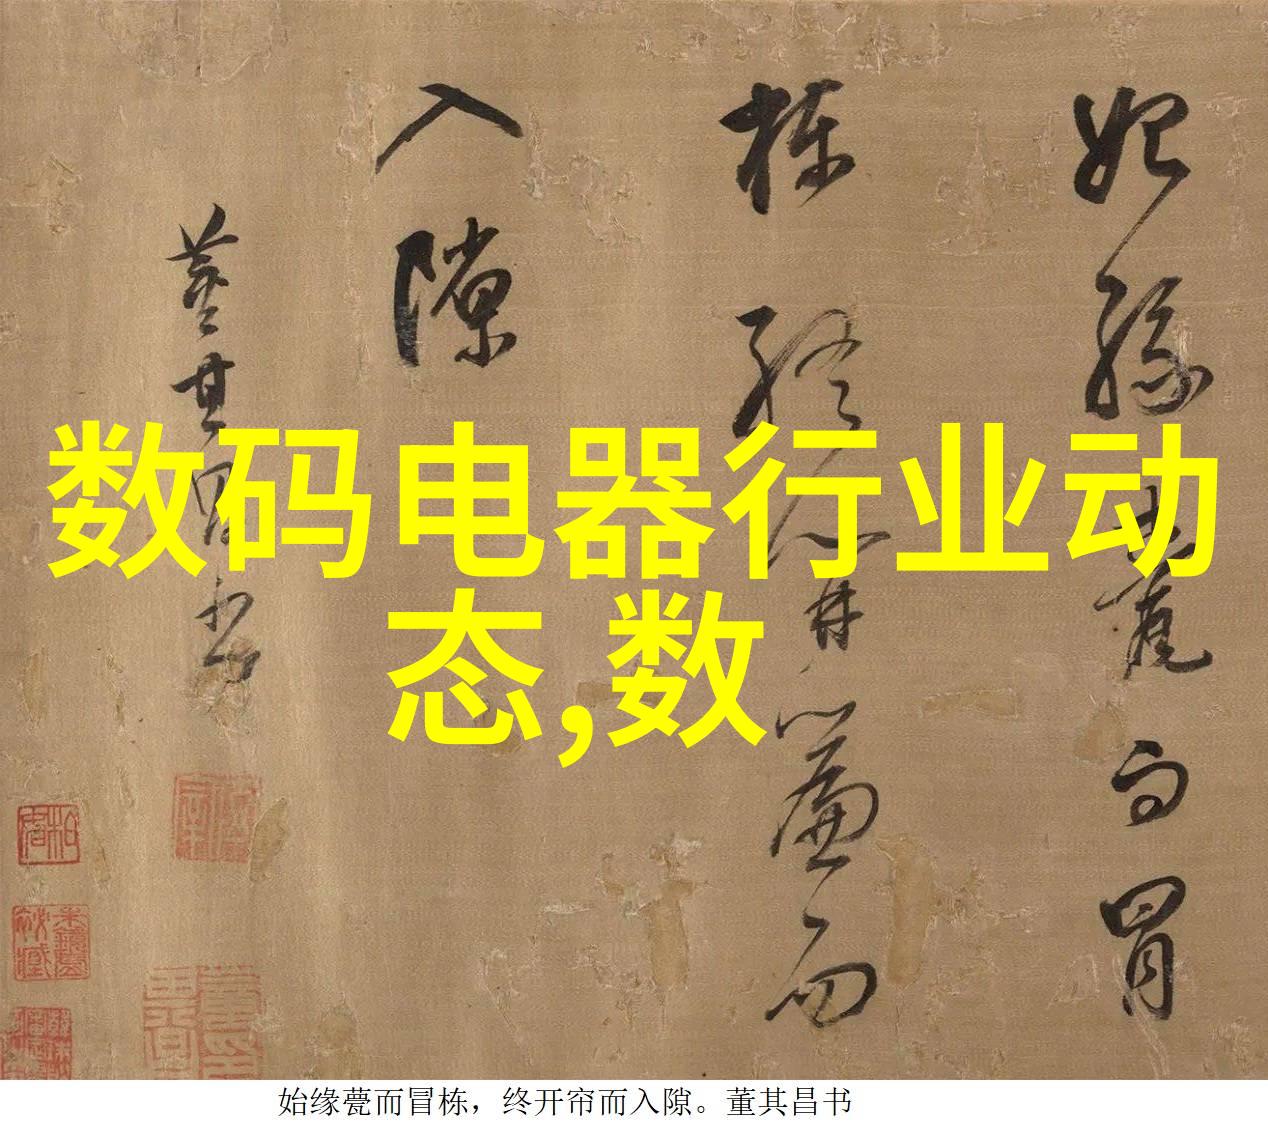 始缘甍而冒
栋终开帘而
入隙
董其昌书
数码电器行业动
态,数
始缘甍而冒栋，终开帘而入隙。董其昌书